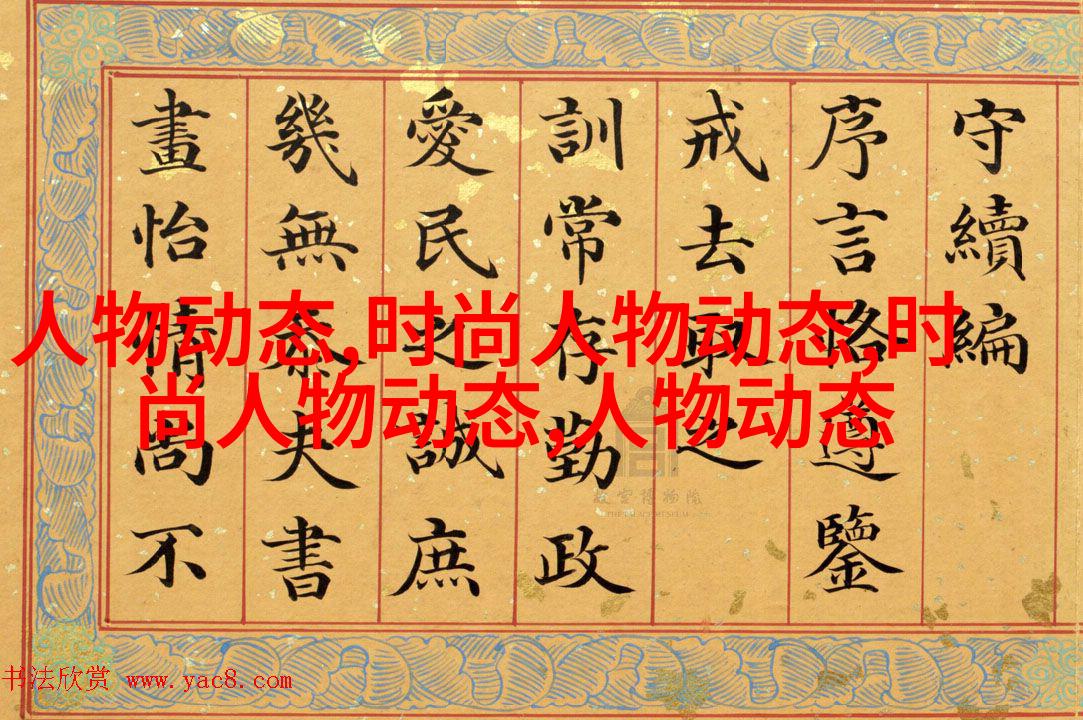 守續編
序言略遵鑒
戒去取之
訓常存勤政
愛民之誠庶
幾無忝夫書
畫怡情尚不
人物动态,时尚人物动态,时
尚人物动态,人物动态
故宫博物院
THE PALACE MUSEUM
书法欣赏 www.yac8.com